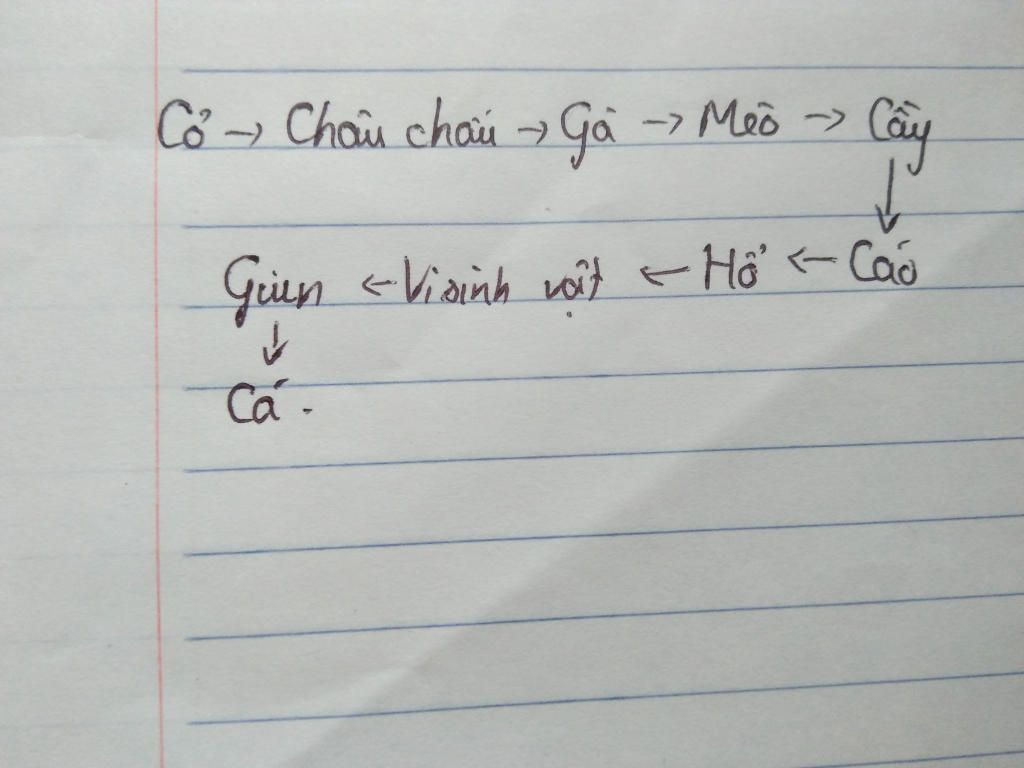 Cỏ → Châu chấu → Gà → Mèo → Cầy
↓
Giun ← Vi sinh vật ← Hổ ← Cáo
↓
Cá.